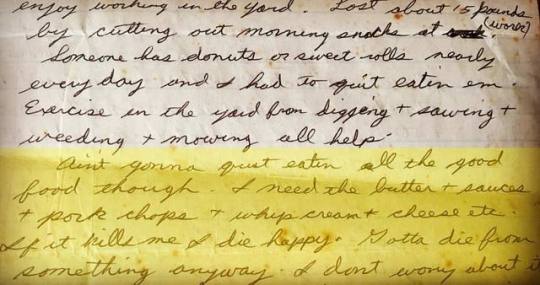 enjoy working in the yard. Lost about 15 pounds
by cutting out morning snacks at (work).
Someone has donuts or sweet rolls nearly
every day and I had to quit eatin em.
Exercise in the yard from digging + sawing +
weeding + mowing all help.
Aint gonna quit eatin all the good
food though. I need the butter + sauces
+ pork chops + whip cream + cheese etc.
If it kills me I die happy. Gotta die from
something anyway. I dont worry about it